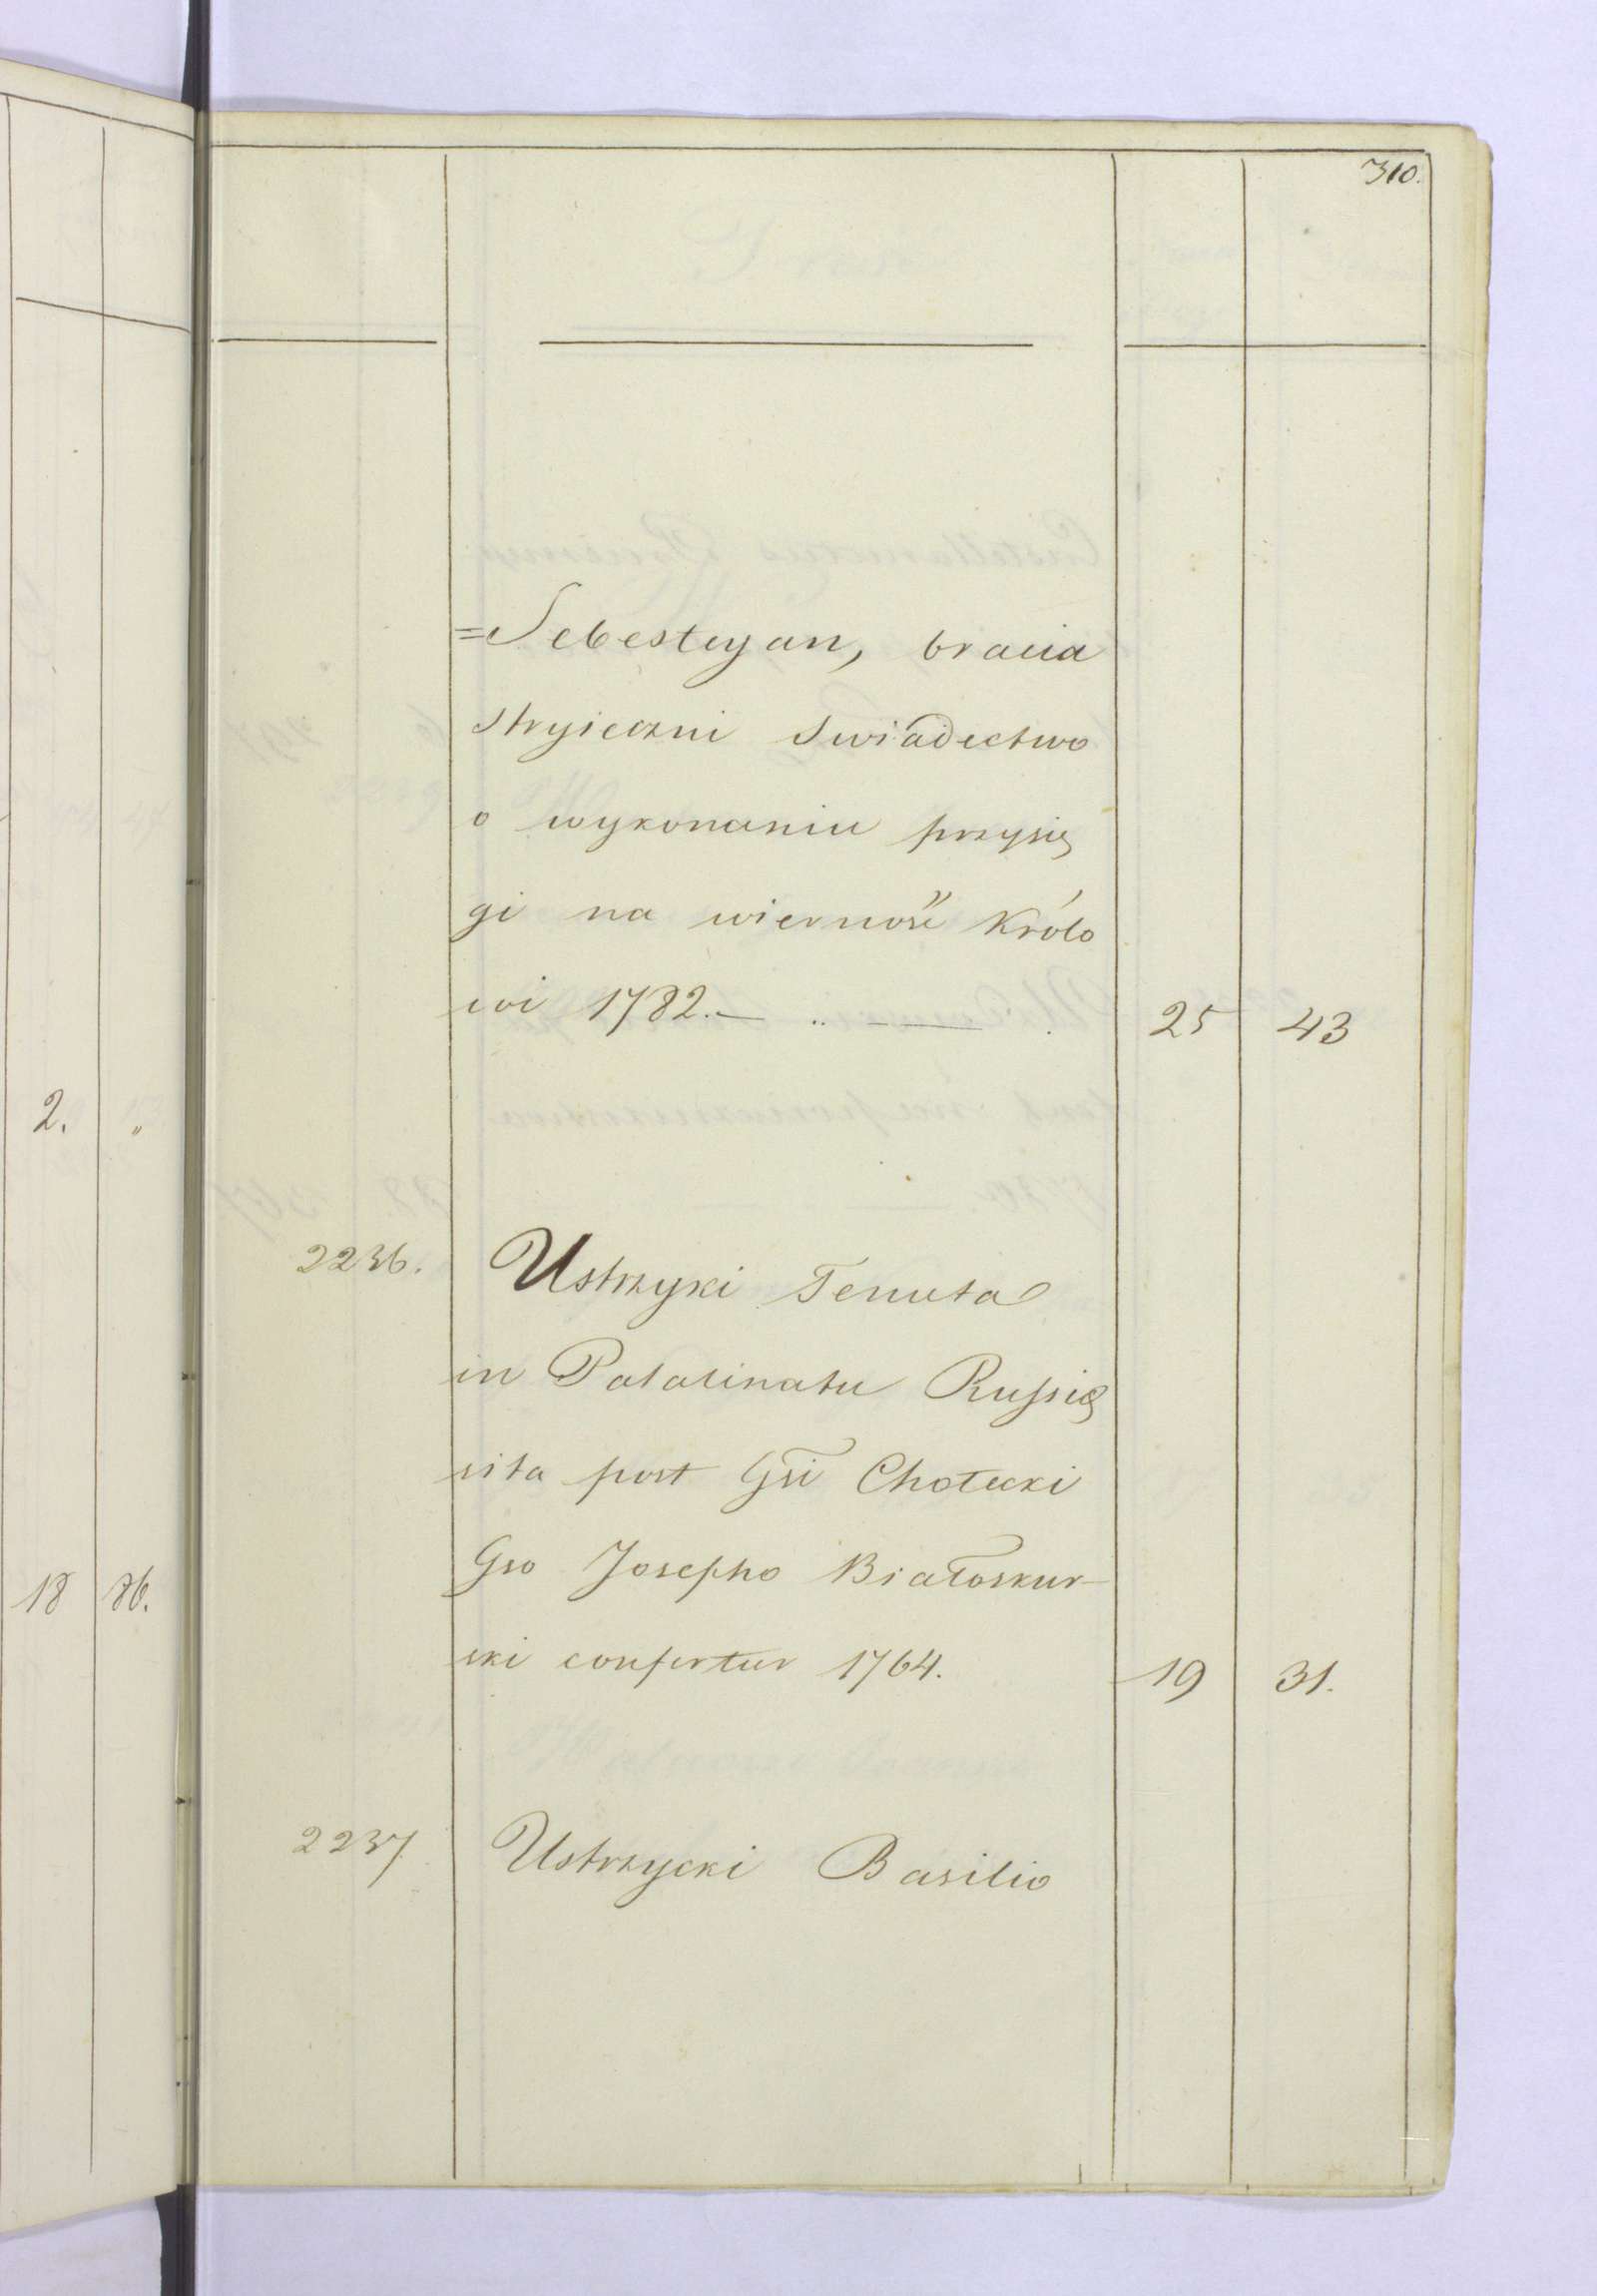 310.
=Sebestyan, bracia
stryieczni swiadectwo
o wykonaniu przysię
gi na wierność Królo
wi 1782.— .. — . 25 43
2. "
2236. Ustrzyki Tenuta
in Palatinatu Russię
sita post Gsi Chołecki
Gso Josepho Białoskur-
18 86.
ski confertur 1764. 19 31.
2237 Ustrzycki Basilio